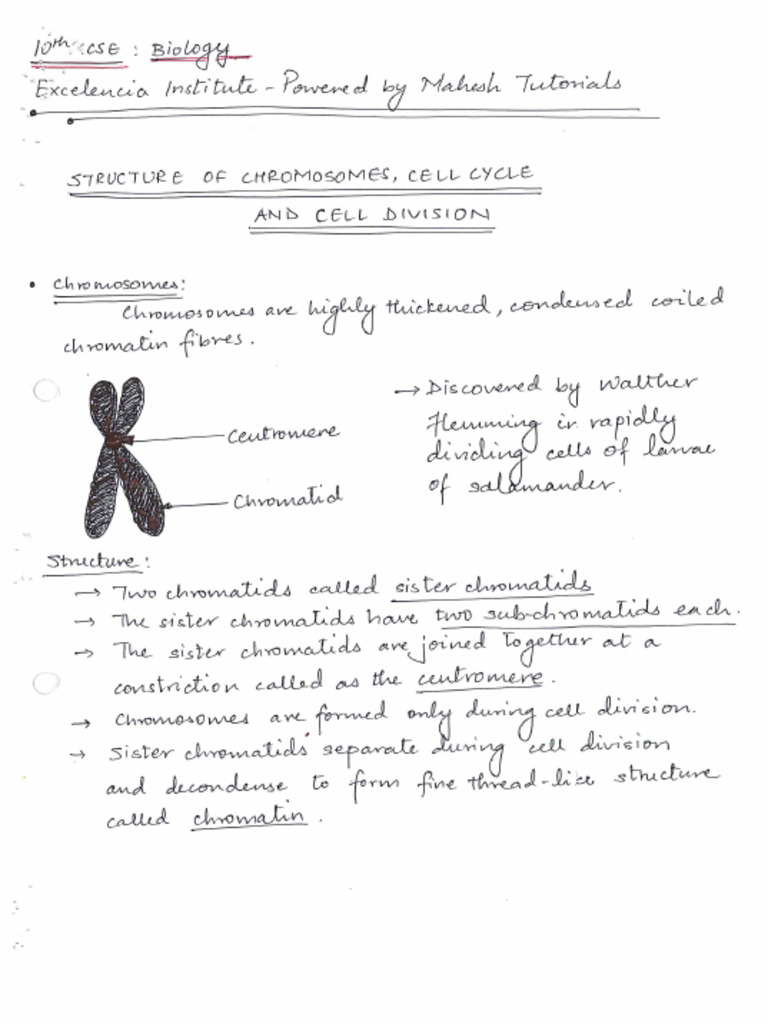 10th ICSE : Biology
Excelencia Institute - Powered by Mahesh Tutorials
STRUCTURE OF CHROMOSOMES, CELL CYCLE
AND CELL DIVISION
• Chromosomes:
Chromosomes are highly thickened, condensed coiled
chromatin fibres.
→ Discovered by Walther
Flemming in rapidly
dividing cells of larvae
of salamander.
Centromere
Chromatid
Structure:
→ Two chromatids called sister chromatids
→ The sister chromatids have two sub-chromatids each.
→ The sister chromatids are joined together at a
constriction called as the centromere.
→ Chromosomes are formed only during cell division.
→ Sister chromatids separate during cell division
and decondense to form fine thread-like structure
called chromatin.